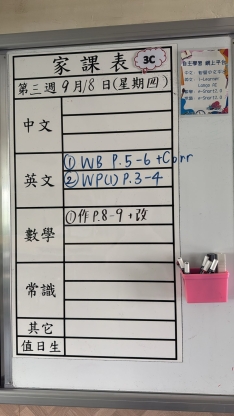 家課表 3C
第三週 9月18日(星期四)
中文
英文
① WB P.5-6 +Corr
② WP(1) P.3-4
數學
① 作 P.8-9 +改
常識
其它
值日生
自主學習 網上平台